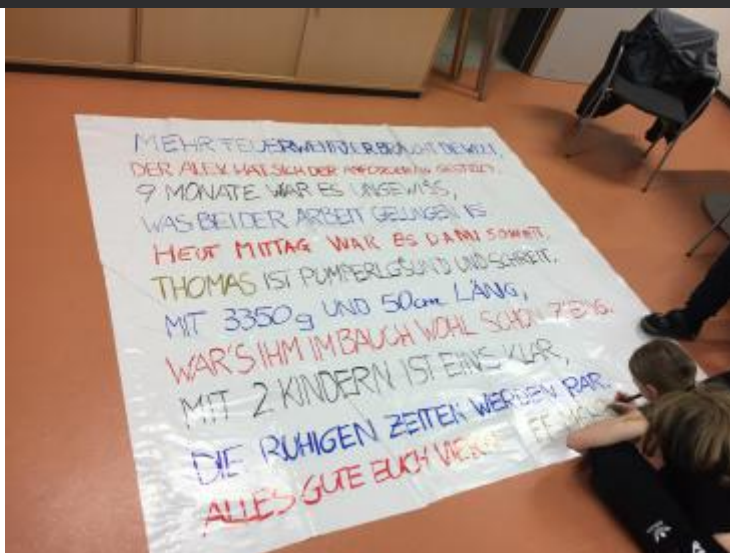 MEHR FEUERWEHRLER BRAUCHT DIE WELT,
DER ALEX HAT SICH DER ANFORDERUNG GESTELLT.
9 MONATE WAR ES UNGEWISS,
WAS BEI DER ARBEIT GELUNGEN IS
HEUT MITTAG WAR ES DANN SOWEIT,
THOMAS IST PUMPERLGSUND UND SCHREIT.
MIT 3350g UND 50cm LANG,
WAR'S IHM IM BAUCH WOHL SCHON Z'ENG.
MIT 2 KINDERN IST EINS KLAR,
DIE RUHIGEN ZEITEN WERDEN RAR.
ALLES GUTE EUCH